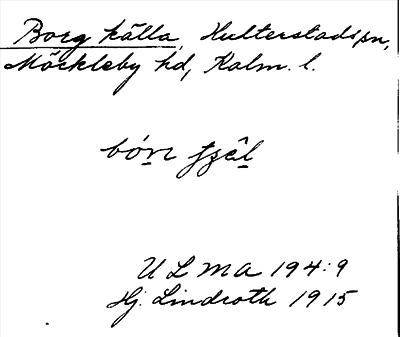 Borg källa, Hulterstads sn,
Möckleby hd, Kalm. l.
ULMA 194:9
Hj. Lindroth 1915